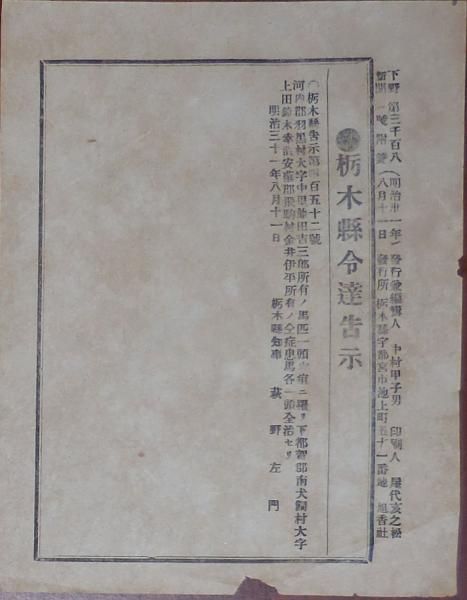 下野 第三千百八 (明治卅一年) 發行兼編輯人 中村甲子男 印刷人 屋代亥之松
新聞 一號附錄 (八月十一日) 發行所 栃木縣宇都宮市池上町五十一番地 旭香社
栃木縣令達告示
〇栃木縣告示第四百五十二號
河內郡羽黑村大字中里 田吉三郎所有ノ馬匹一頭 疽ニ罹リ下都賀郡南犬飼村大字
上田鈴木幸 安蘇郡飛駒村金井伊平所有ノ仝症患馬各一頭全治セリ
明治三十一年八月十一日 栃木縣知事 萩野左門